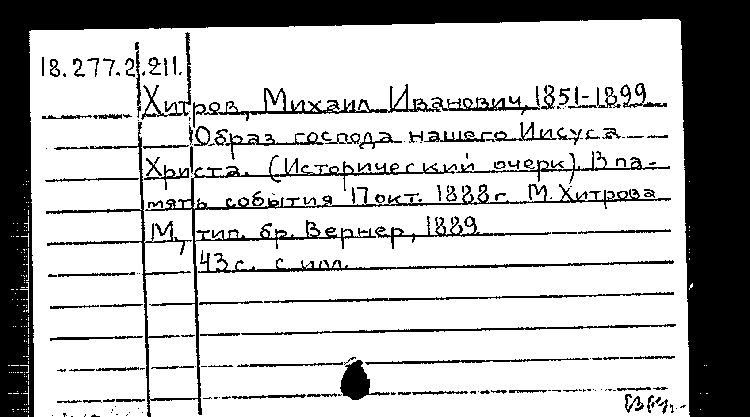 18.277.2.211.
Хитров, Михаил Иванович, 1851-1899
Образ господа нашего Иисуса
Христа. (Исторический очерк). В па-
мять события 17 окт. 1888 г. М. Хитрова
М., тип. бр. Вернер, 1889
43 с. с илл.